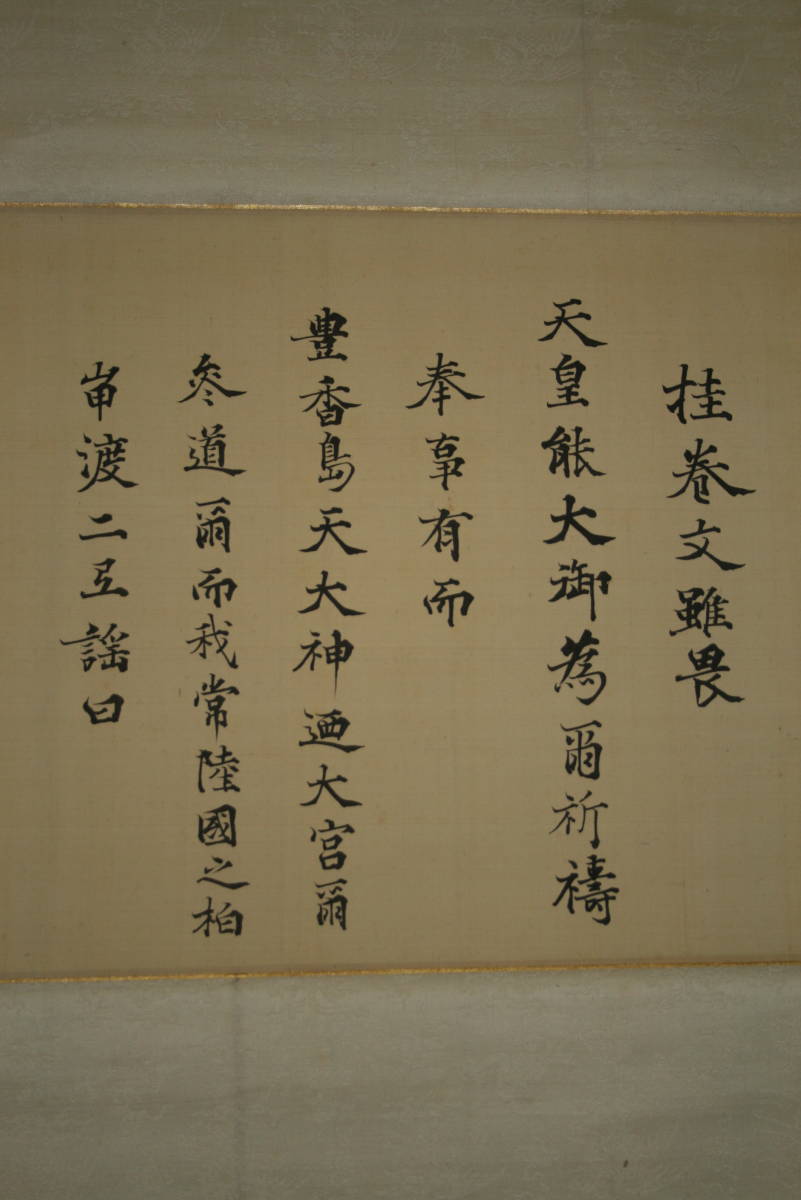 挂卷文雖畏
天皇能大御為爾祈禱
奉事有而
豊香島天大神迺大宮爾
参道爾而我常陸國之柏
岬渡二弖謡曰